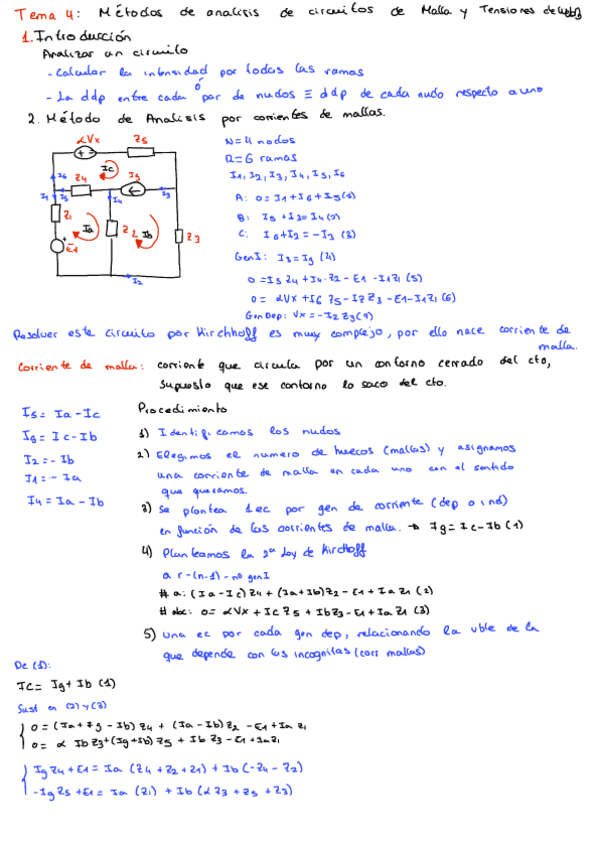 Tema 4: Métodos de analisis de circuitos de Malla y Tensiones de
1. Introducción
Analizar un circuito
- Calcular la intensidad por todas las ramas
- La ddp entre cada par de nudos ≡ ddp de cada nudo respecto a uno
2. Método de Analisis por corrientes de mallas.
αVx Z5
N=4 nodos
R=6 ramas
I1, I2, I3, I4, I5, I6
I6 Z4 Ic Ig
I1 I5 I4 I3
A: 0=I1+I6+I5(1)
Z1 Ia Z2 Ib Z3
B: I5+I3=I4(2)
C: I6+I2=-I3 (3)
E1
GenI: I3=Ig (4)
I2
0=I5Z4+I4·Z2-E1-I1Z1 (5)
0= αVx+I6Z5-I2Z3-E1-I1Z1(6)
Gen Dep: Vx=-I2Z3(7)
Resolver este circuito por Kirchhoff es muy complejo, por ello nace corriente de
malla.
Corriente de malla: corriente que circula por un contorno cerrado del cto,
supuesto que ese contorno lo saco del cto.
I5= Ia-Ic
Ig= Ic-Ib
I2=-Ib
I1=-Ia
I4=Ia-Ib
Procedimiento
1) Identificamos los nudos
2) Elegimos el numero de huecos (mallas) y asignamos
una corriente de malla en cada uno con el sentido
que queramos.
3) Se plantea 1 ec por gen de corriente (dep o ind)
en función de las corrientes de malla. → Ig=Ic-Ib (1)
4) Planteamos la 2ª Ley de Kirchoff
a r-(n-1)-nº genI
# a: (Ia-Ic)Z4+(Ia+Ib)Z2-E1+IaZ1 (2)
# abc: 0=αVx+IcZ5+IbZ3-E1+IaZ1 (3)
5) una ec por cada gen dep, relacionando la vble de la
que depende con las incognitas (corr mallas)
De (1):
Ic= Ig+Ib (1)
Sust en (2) y (3)
0=(Ia+Ig-Ib)Z4+(Ia-Ib)Z2-E1+IaZ1
0=αIbZ3+(Ig+Ib)Z5+IbZ3-E1+IaZ1
IgZ4+E1=Ia(Z4+Z2+Z1)+Ib(-Z4-Z2)
-IgZ5+E1=Ia(Z1)+Ib(αZ3+Z5+Z3)